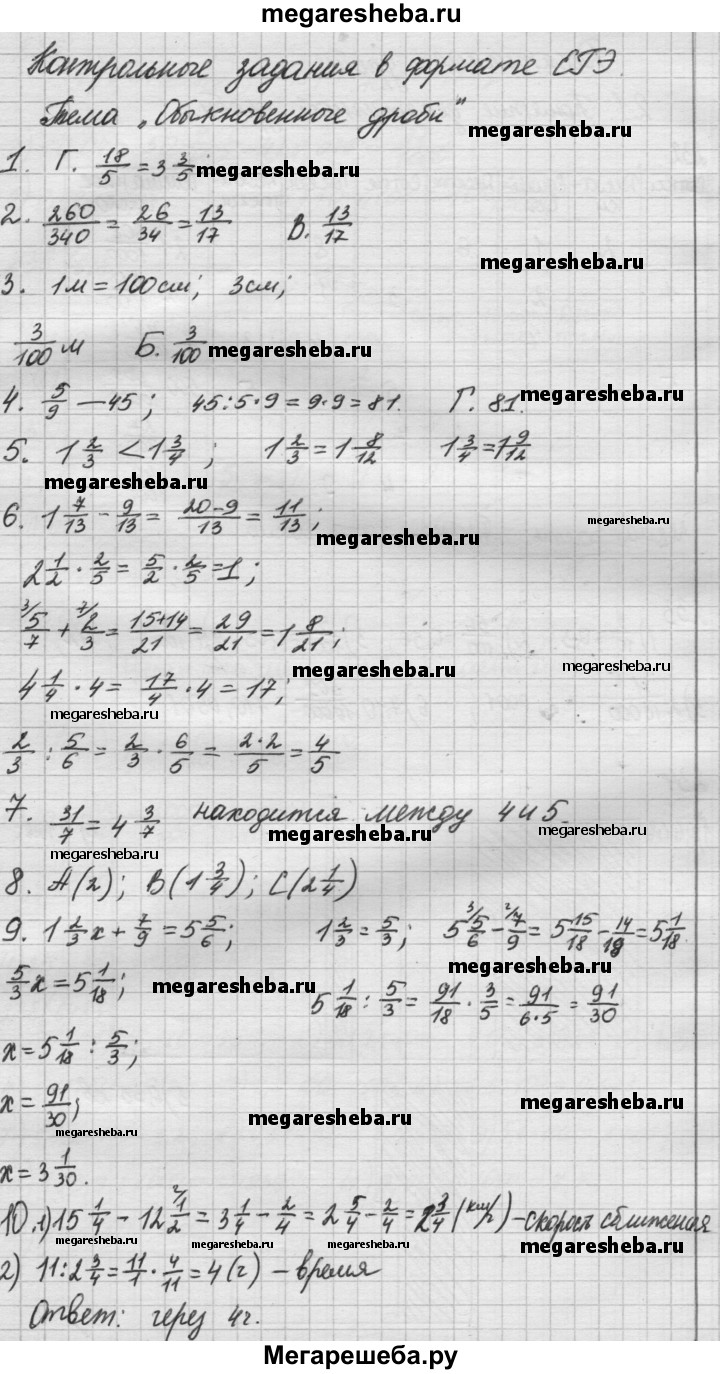 megaresheba.ru
Контрольные задания в формате ЕГЭ.
Тема „Обыкновенные дроби"
megaresheba.ru
1. Г. 18/5 = 3 3/5 megaresheba.ru
2. 260/340 = 26/34 = 13/17 В. 13/17
megaresheba.ru
3. 1м = 100см; 3см;
3/100 м Б. 3/100 megaresheba.ru
4. 5/9 — 45; 45:5·9 = 9·9 = 81. Г. 81. megaresheba.ru
5. 1 2/3 < 1 3/4; 1 2/3 = 1 8/12 1 3/4 = 1 9/12
megaresheba.ru
6. 1 7/13 - 9/13 = 20-9/13 = 11/13; megaresheba.ru
megaresheba.ru
2 1/2 · 2/5 = 5/2 · 2/5 = 1;
3/ 5/7 + 7/ 2/3 = 15+14/21 = 29/21 = 1 8/21;
megaresheba.ru megaresheba.ru
4 1/4 · 4 = 17/4 · 4 = 17;
megaresheba.ru
2/3 : 5/6 = 2/3 · 6/5 = 2·2/5 = 4/5
7. 31/7 = 4 3/7 находится между 4 и 5.
megaresheba.ru
megaresheba.ru
8. А(2); В(1 3/4); С(2 1/4)
9. 1 2/3 x + 7/9 = 5 5/6; 1 2/3 = 5/3; 5 3/ 5/6 - 2/ 7/9 = 5 15/18 - 14/18 = 5 1/18.
megaresheba.ru
5/3 x = 5 1/18; megaresheba.ru 5 1/18 : 5/3 = 91/18 · 3/5 = 91/6·5 = 91/30
x = 5 1/18 : 5/3;
x = 91/30; megaresheba.ru megaresheba.ru
megaresheba.ru
x = 3 1/30.
10. 1) 15 1/4 - 12 2/ 1/2 = 3 1/4 - 2/4 = 2 5/4 - 2/4 = 2 3/4 (км/ч) - скорость сближения
megaresheba.ru megaresheba.ru megaresheba.ru megaresheba.ru
2) 11 : 2 3/4 = 11/1 · 4/11 = 4 (ч) - время
Ответ: через 4ч.
Мегарешеба.ру